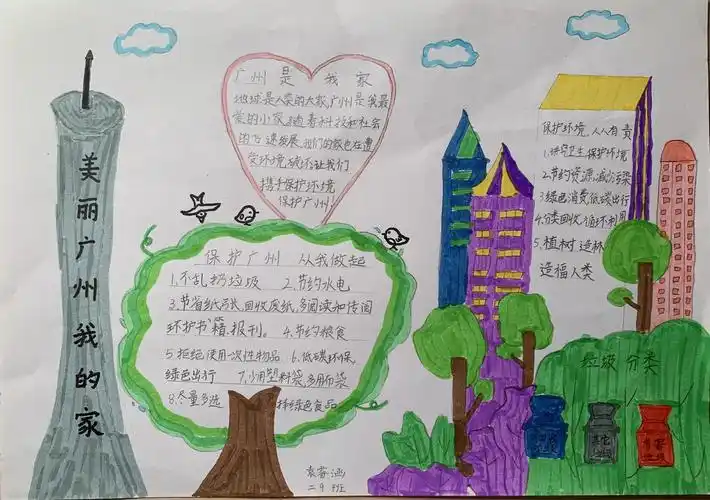 美丽广州我的家
广州是我家
地球是人类的大家,广州是我最
爱的小家,随着科技和社会
的飞速发展,我们的家也在遭
受环境破坏,让我们
携手保护环境
保护广州
保护广州 从我做起
1.不乱扔垃圾 2.节约水电
3.节省纸张,回收废纸,多阅读和传阅
环护书籍,报刊。4.节约粮食
5.拒绝使用一次性物品 6.低碳环保,
绿色出行 7.少用塑料袋,多用布袋
8.尽量多选择绿色食品
保护环境,人人有责
1.讲究卫生,保护环境
2.节约资源,减少污染
3.绿色消费,低碳出行
4.分类回收,循环利用
5.植树造林
造福人类
垃圾分类
其它
有害
二9班